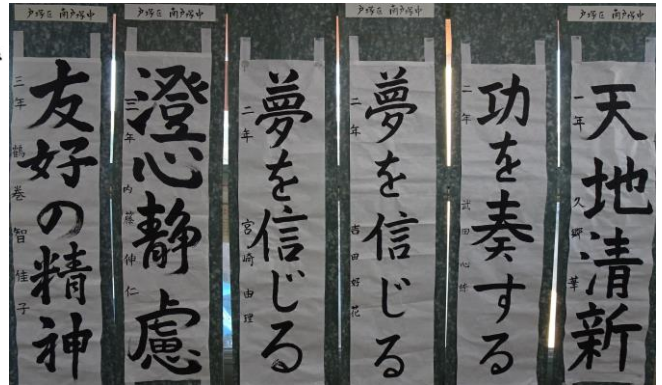 戸塚区 南戸塚中
天地清新
一年 久郷 華
功を奏する
二年 武田心
戸塚区 南戸塚中
夢を信じる
二年 吉田好花
夢を信じる
二年 宮崎由理
戸塚区 南戸塚中
澄心静慮
三年 内藤伸仁
戸塚区 南戸塚中
友好の精神
三年 鶴巻智佳子